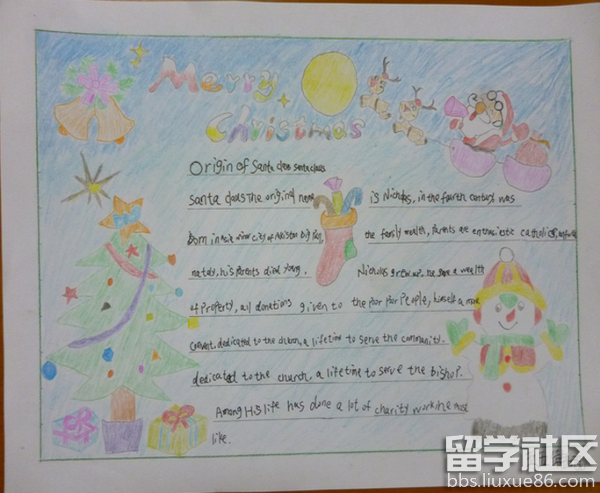 Merry
Christmas
Origin of Santa claus santa claus
santa claus The original name is Nicholas, in the fourth century was
born in Asia minor city of the family wealth, Parents are enthusiastic catholics,
nately, his parents died young. Nicholas grew up, he gave a wealth
of Property, all donations given to the Poor Poor People, himself a
Convent, dedicated to the church, a lifetime to serve the community.
dedicated to the church, a lifetime to serve the bishop.
Among His life has done a lot of charity work he most
like.
留学社区
bbs.liuxue86.com